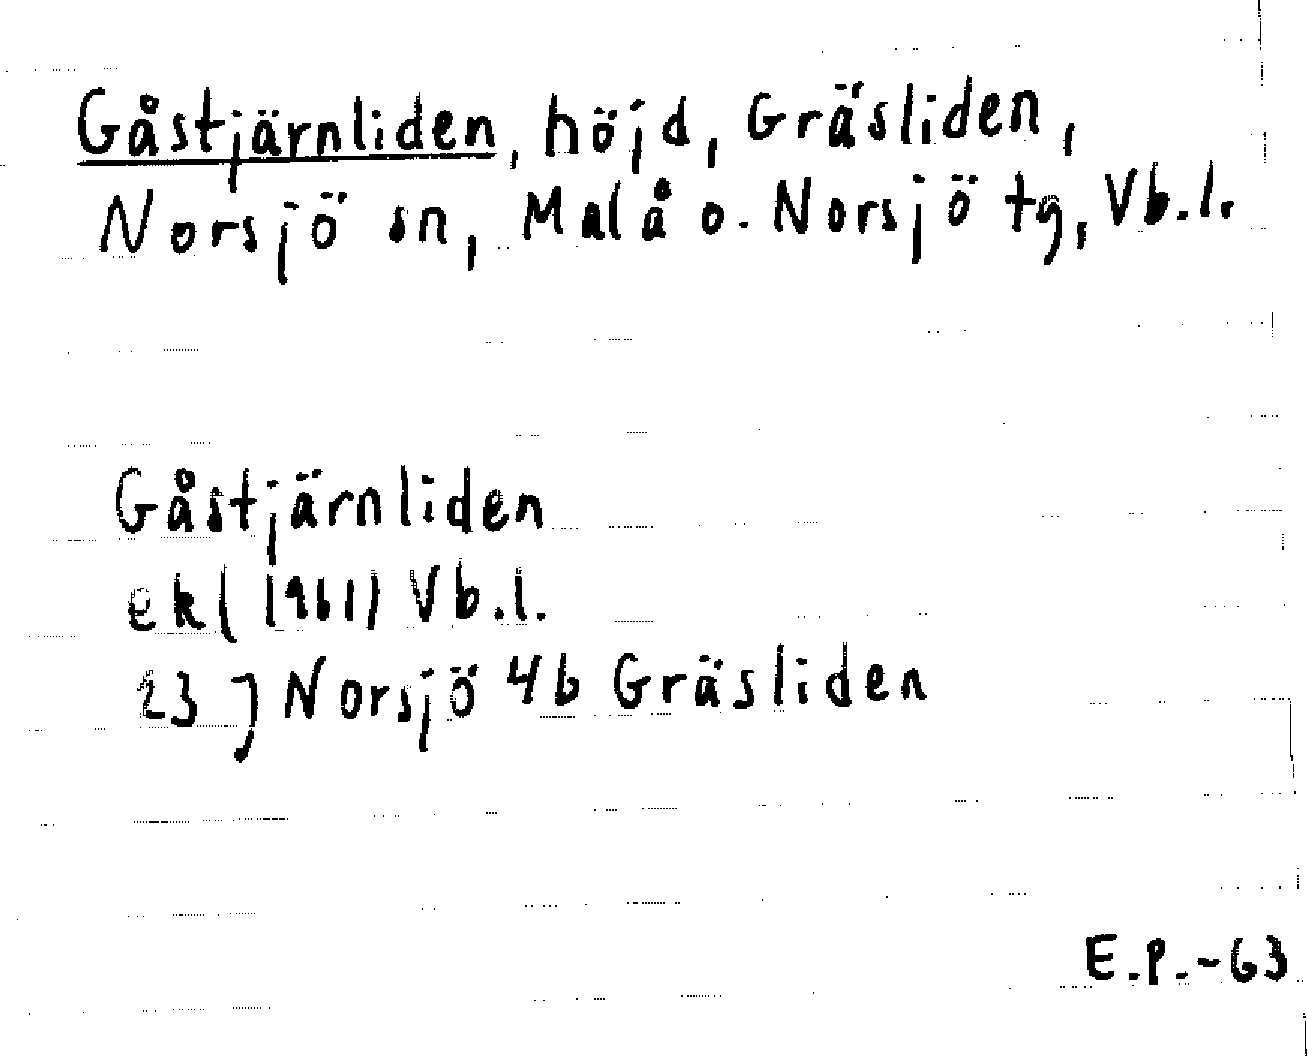 Gåstjärnliden, höjd, Gräsliden,
Norsjö sn, Malå o. Norsjö tg, Vb.l.
Gåstjärnliden
ek (1961) Vb.l.
23 J Norsjö 4b Gräsliden
E.P.-63